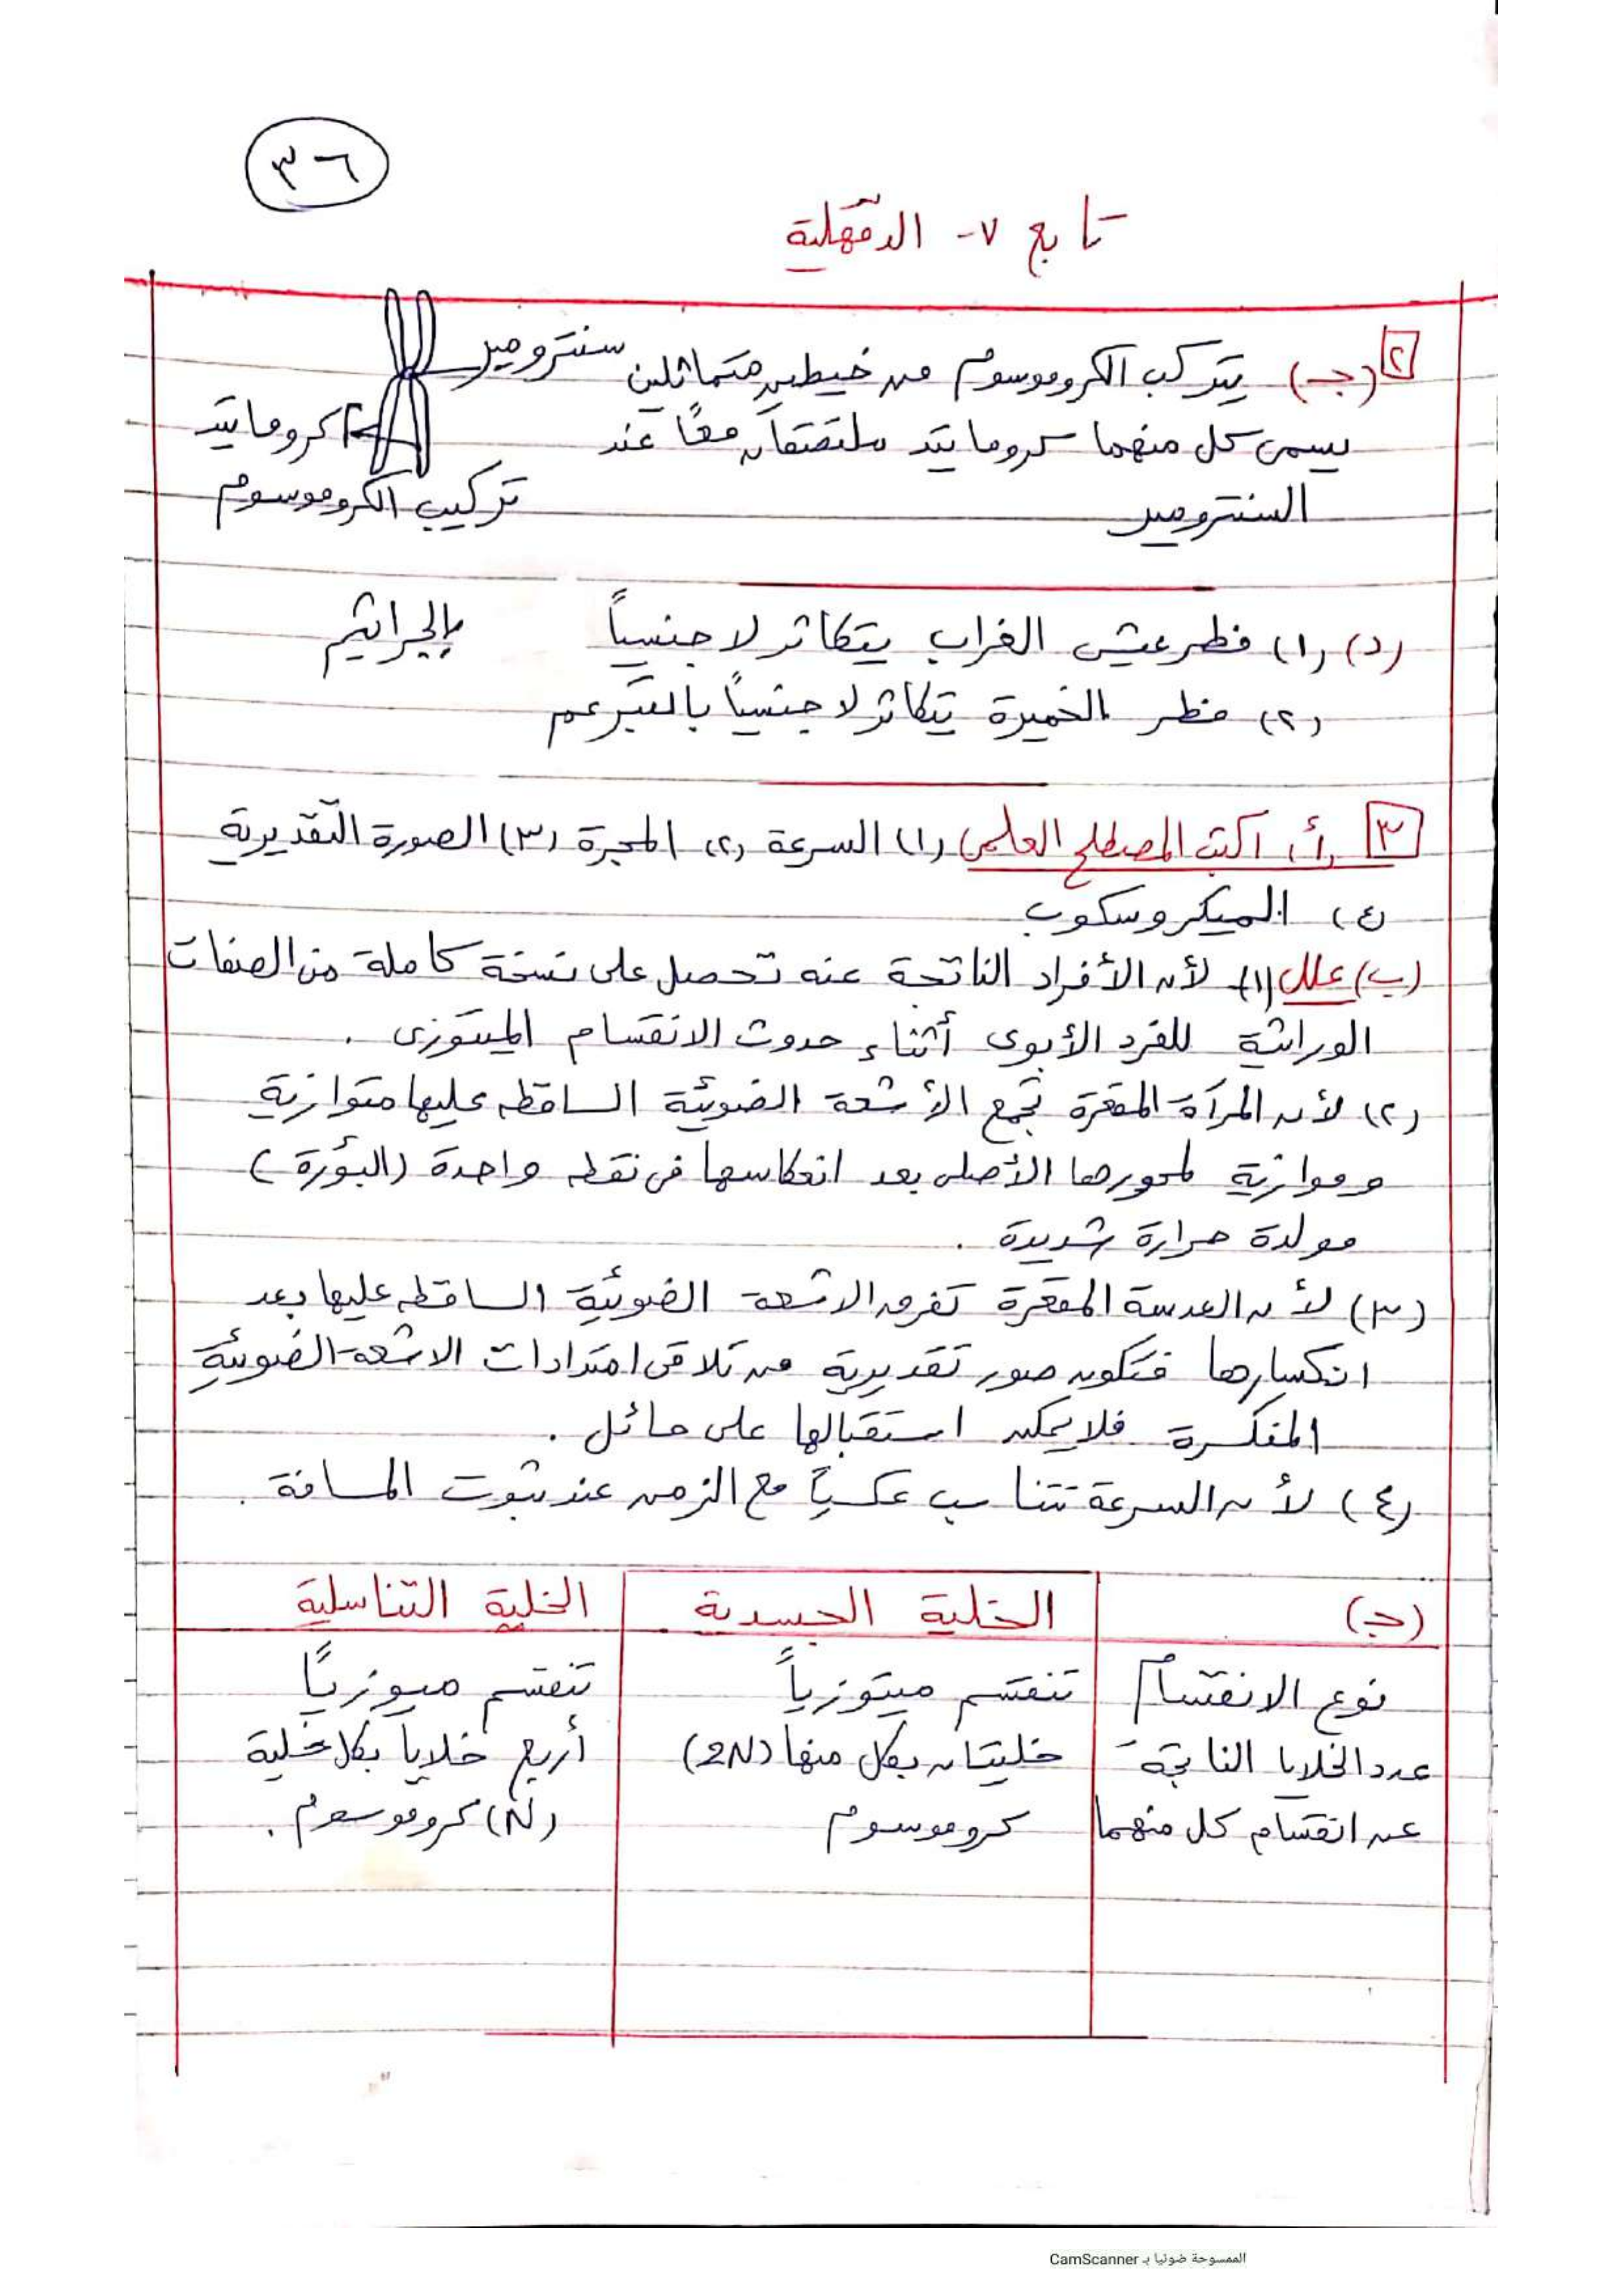 ٣٦
تابع ٧- الدقهلية
٢ (جـ) يتركب الكروموسوم من خيطين متماثلين
سنترومير
يسمى كل منهما كروماتيد ملتصقان معاً عند
كروماتيد
السنترومير
تركيب الكروموسوم
(د) (١) فطر عيش الغراب يتكاثر لاجنسياً بالجراثيم
(٢) فطر الخميرة يتكاثر لاجنسياً بالتبرعم
٣ (أ) اكتب المصطلح العلمى (١) السرعة (٢) المجرة (٣) الصورة التقديرية
(٤) الميكروسكوب
(ب) علل (١) لأن الأفراد الناتجة عنه تحصل على نسخة كاملة من الصفات
الوراثية للفرد الأبوى أثناء حدوث الانقسام الميتوزى .
(٢) لأن المرآة المقعرة تجمع الأشعة الضوئية الساقطه عليها متوازية
وموازية لمحورها الأصلى بعد انعكاسها فى نقطه واحدة (البؤرة)
مولدة حرارة شديدة .
(٣) لأن العدسة المقعرة تفرق الاشعة الضوئية الساقطه عليها بعد
انكسارها فتكون صور تقديرية من تلاقى امتدادات الاشعة الضوئية
المنكسرة فلا يمكن استقبالها على حائل .
(٤) لأن السرعة تتناسب عكسياً مع الزمن عند ثبوت المسافة .
(جـ) الخلية الجسدية الخلية التناسلية
نوع الانقسام تنقسم ميتوزياً تنقسم ميوزياً
عدد الخلايا الناتجة خليتان بكل منها (2N) أربع خلايا بكل خلية
عن انقسام كل منهما كروموسوم (N) كروموسوم .
الممسوحة ضوئيا بـ CamScanner